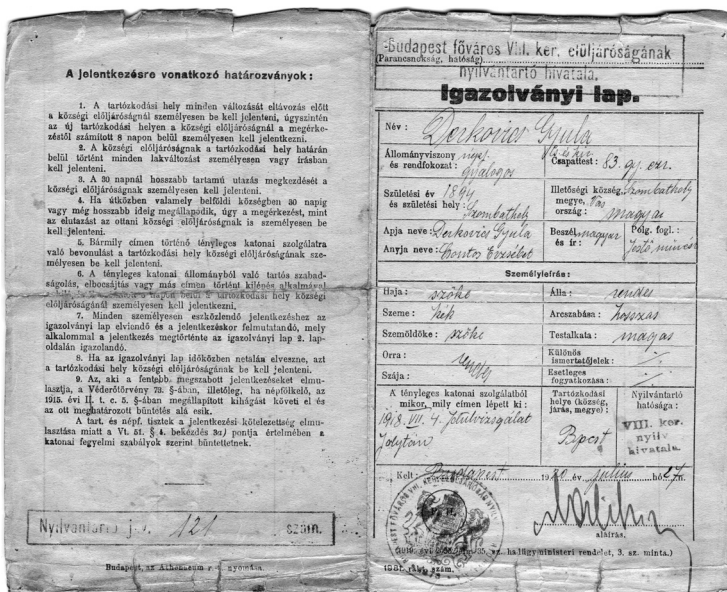 A jelentkezésre vonatkozó határozványok:
1. A tartózkodási hely minden változását eltávozás előtt
a községi elöljáróságnál személyesen be kell jelenteni, úgyszintén
az új tartózkodási helyen a községi elöljáróságnál a megérke-
zéstől számított 8 napon belül személyesen kell jelentkezni.
2. A községi elöljáróságnak a tartózkodási hely határán
belül történt minden lakváltozást személyesen vagy írásban
kell jelenteni.
3. A 30 napnál hosszabb tartamú utazás megkezdését a
községi elöljáróságnak személyesen kell jelenteni.
4. Ha útközben valamely belföldi községben 30 napig
vagy még hosszabb ideig megállapodik, úgy a megérkezést, mint
az elutazást az ottani községi elöljáróságnak is személyesen be
kell jelenteni.
5. Bármily címen történő tényleges katonai szolgálatra
való bevonulást a tartózkodási hely községi elöljáróságának sze-
mélyesen be kell jelenteni.
6. A tényleges katonai állományból való tartós szabad-
ságolás, elbocsájtás vagy más címen történt kilépés alkalmával
napon belül a tartózkodási hely községi
elöljáróságánál személyesen kell jelentkezni.
7. Minden személyesen eszközlendő jelentkezéshez az
igazolványi lap elviendő és a jelentkezéskor felmutatandó, mely
alkalommal a jelentkezés megtörténte az igazolványi lap 2. lap-
oldalán igazolandó.
8. Ha az igazolványi lap időközben netalán elveszne, azt
a tartózkodási hely községi elöljáróságának be kell jelenteni.
9. Az, aki a fentebb megszabott jelentkezéseket elmu-
lasztja, a Véderőtörvény 73. §-ában, illetőleg, ha népfölkelő, az
1915. évi II. t. c. 5. §-ában megállapított kihágást követi el és
az ott meghatározott büntetés alá esik.
A tart. és népf. tisztek a jelentkezési kötelezettség elmu-
lasztása miatt a Vt. 51. § 4. bekezdés 3a) pontja értelmében a
katonai fegyelmi szabályok szerint büntettetnek.
Nyilvántartó 121 szám.
Budapest, az Athenaeum r.-t. nyomása.
Budapest főváros VIII. ker. elöljáróságának
(Parancsnokság, hatóság)
nyilvántartó hivatala.
Igazolványi lap.
Név: Derkovics Gyula
Állományviszony népf. Csapattest: 83. gy. ezr.
és rendfokozat: gyalogos
Születési év 1894 Illetőségi község, Szombathely
és születési hely: Szombathely megye, Vas
ország: magyar
Apja neve: Derkovics Gyula Beszél magyar Polg. fogl.:
Anyja neve: Erzsébet és ír:
Személyleírás:
Haja: szőke Álla: rendes
Szeme: kék Arcszabása: hosszas
Szemöldöke: szőke Testalkata: magas
Orra: rendes Különös
ismertetőjelek:
Szája: Esetleges
fogyatkozása:
A tényleges katonai szolgálatból Tartózkodási Nyilvántartó
mikor, mily címen lépett ki: helye (község, hatósága:
járás, megye):
1918. VII. 4. Bpest VIII. ker.
folytán nyilv.
hivatala.
Kelt: Budapest 1920 év július hó 27n.
aláírás.